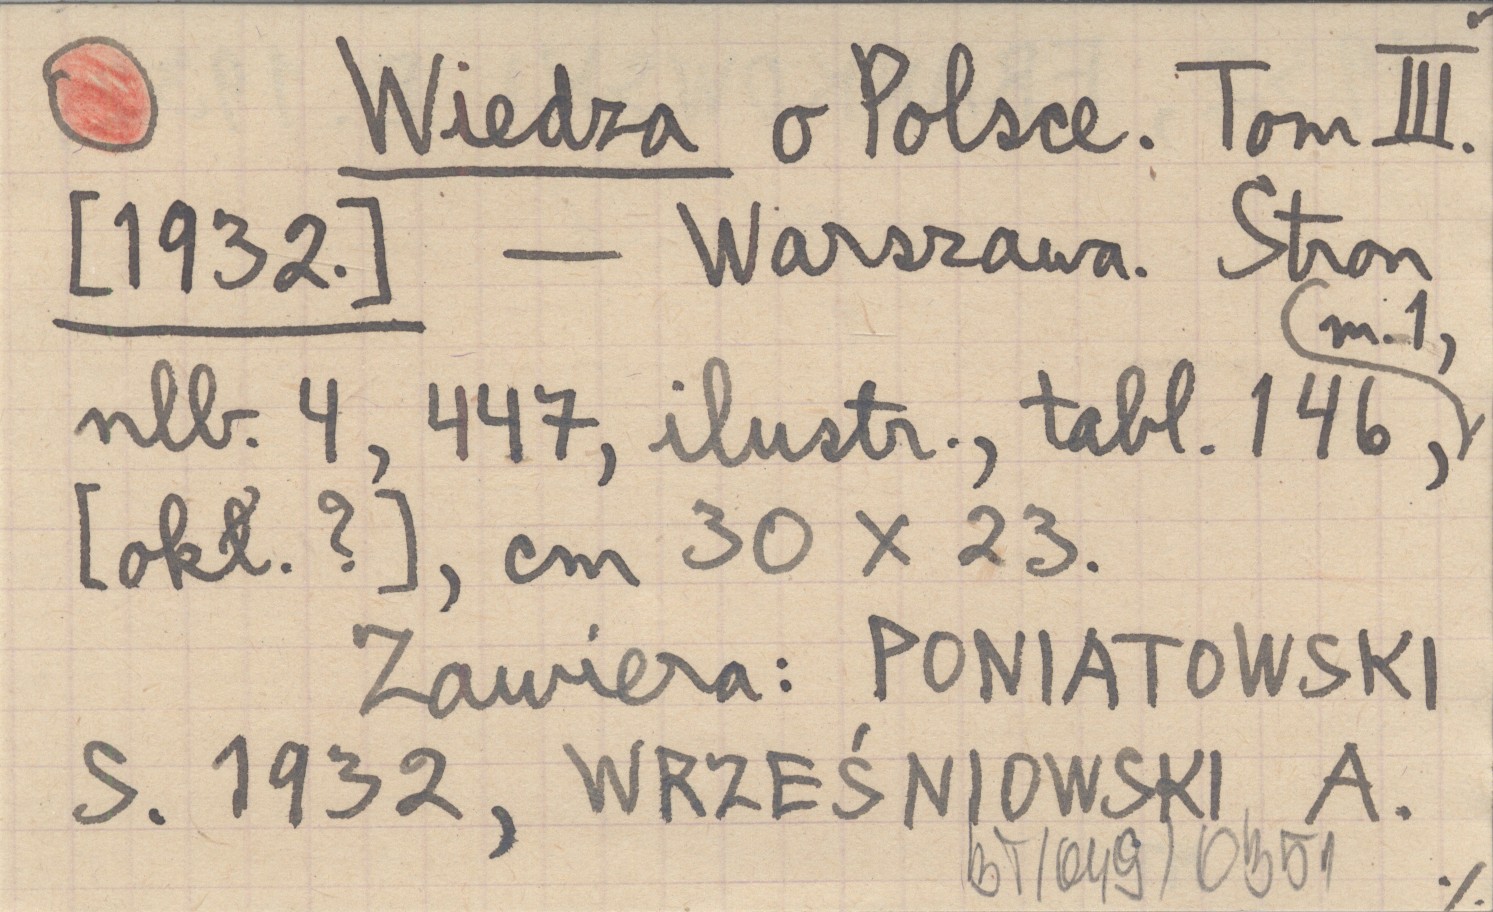 Wiedza o Polsce. Tom III.
[1932.] — Warszawa. Stron
(m. 1,
nlb. 4, 447, ilustr., tabl. 146,
[okł. ?], cm 30 x 23.
Zawiera: PONIATOWSKI
S. 1932, WRZEŚNIOWSKI A.
BT/049/0351
./.